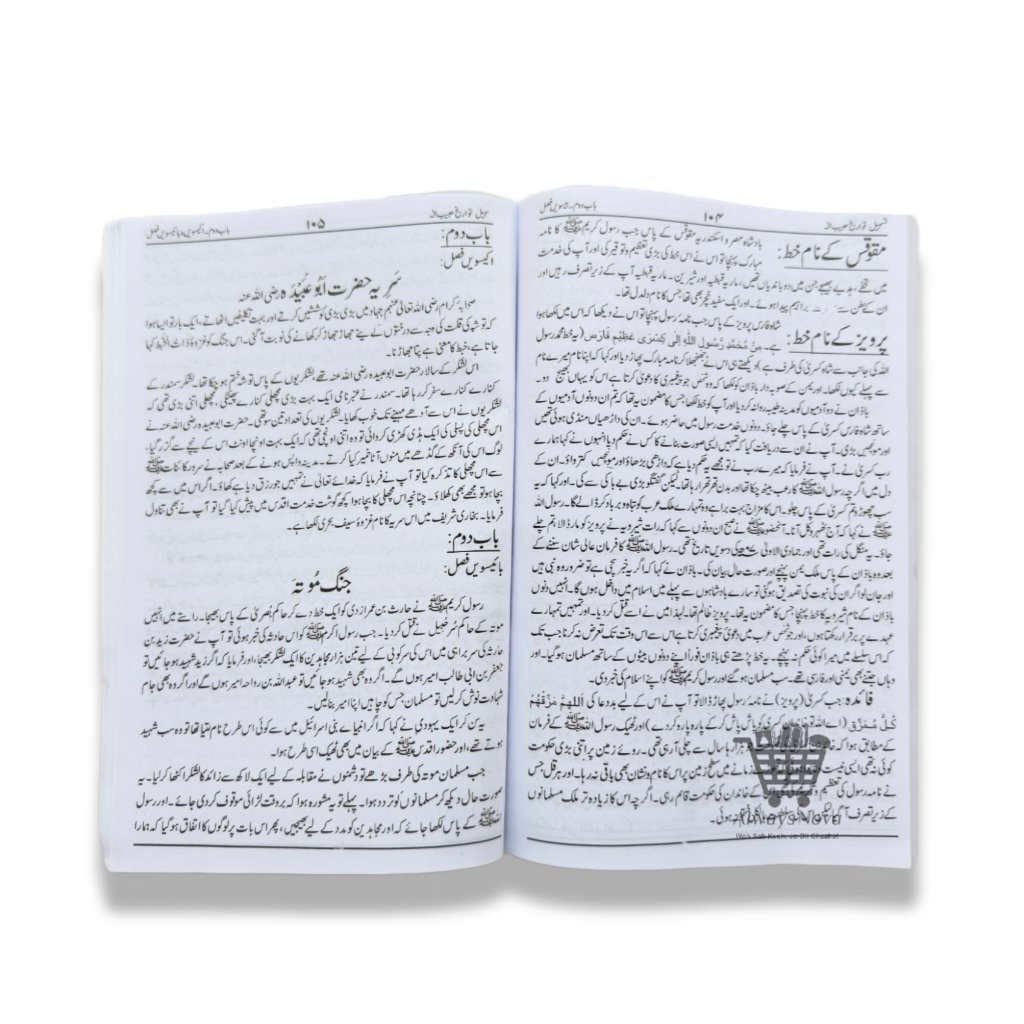 تسہیل تواریخ حبیب الٰہ ۱۰۴ باب دوم۔ بیسویں فصل
مقوقس کے نام خط: بادشاہ مصر و اسکندریہ مقوقس کے پاس جب رسول کریم ﷺ کا نامہ
مبارک پہنچا تو اس نے اس خط کی بڑی تعظیم و توقیر کی اور آپ کی خدمت
میں تحفے، ہدیے بھیجے جن میں دو باندیاں تھیں، ماریہ قبطیہ اور شیرین۔ ماریہ قبطیہ آپ کے زیر تصرف رہیں اور
ان سے ابراہیم پیدا ہوئے۔ اور ایک سفید خچر بھی تھا جس کا نام دلدل تھا۔
پرویز کے نام خط: شاہ فارس پرویز کے پاس جب نامہ رسول پہنچا تو اس نے دیکھا کہ اس میں لکھا ہوا
ہے۔ مِنْ مُحَمَّدٍ رَّسُوْلِ اللّٰهِ اِلٰى كِسْرٰى عَظِيْمِ فَارِسَ (یہ خط محمد رسول
اللہ کی جانب سے شاہ کسریٰ کی طرف ہے) دیکھتے ہی اس نے جھنجھلا کر نامہ مبارک پھاڑ دیا اور کہا کہ اپنا نام میرے نام
سے پہلے کیوں لکھا۔ اور یمن کے صوبہ دار باذان کو لکھا کہ وہ شخص جو پیغمبری کا دعویٰ کرتا ہے اس کو یہاں بھیج دو۔
باذان نے دو آدمیوں کو مدینہ طیبہ روانہ کر دیا اور آپ کو خط لکھا جس کا مضمون یہ تھا کہ تم ان دونوں آدمیوں کے
ساتھ شاہ فارس کسریٰ کے پاس چلے جاؤ۔ دونوں خدمت رسول میں حاضر ہوئے۔ ان کی داڑھیاں منڈی ہوئی تھیں
اور مونچھیں بڑی۔ آپ نے ان سے دریافت کیا کہ تمہیں ایسی صورت بنانے کا کس نے حکم دیا انہوں نے کہا ہمارے
رب کسریٰ نے۔ آپ نے فرمایا کہ میرے رب نے تو مجھے یہ حکم دیا ہے کہ داڑھی بڑھاؤ اور مونچھیں کترواؤ۔ ان کے
دل میں اگرچہ رسول اللہ ﷺ کا رعب بیٹھ چکا تھا اور بدن تھر تھرا رہا تھا۔ لیکن گفتگو بڑی بے باکی سے کی۔ اور کہا کہ یہ
سب چھوڑو تم کسریٰ کے پاس چلو۔ اس کا مزاج بہت برا ہے وہ تمہارے ملک عرب کو تباہ و برباد کر ڈالے گا۔ رسول اللہ
ﷺ نے کہا کہ آج ٹھہرو کل آنا۔ آنحضور ﷺ نے صبح ان دونوں سے کہا کہ رات شیرویہ نے پرویز کو مار ڈالا تم چلے
جاؤ۔ یہ منگل کی رات تھی اور جمادی الاولیٰ ۷ھ کی دسویں تاریخ تھی۔ رسول اللہ ﷺ کا فرمان عالی شان سننے کے
بعد وہ باذان کے پاس ملک یمن پہنچے اور صورت حال بیان کی۔ باذان نے کہا کہ اگر یہ خبر سچی ہے تو ضرور وہ نبی ہیں
اور جان لو اگر ان کی نبوت کی تصدیق ہو گئی تو سارے بادشاہوں سے پہلے میں اسلام میں داخل ہوں گا۔ انہیں دنوں
باذان کے نام شیرویہ کا خط پہنچا جس کا مضمون یہ تھا۔ پرویز ظالم تھا۔ لہٰذا میں نے اسے قتل کر دیا۔ اور تمہیں تمہارے
عہدے پر برقرار رکھتا ہوں، اور جو شخص عرب میں دعویٰ پیغمبری کرتا ہے اس سے اس وقت تک تعرض نہ کرنا جب تک
کہ اس سلسلے میں میرا کوئی حکم نہ پہنچے۔ یہ خط پڑھتے ہی باذان فوراً اپنے دونوں بیٹوں کے ساتھ مسلمان ہو گیا۔ اور
وہاں جتنے بھی یمنی اور فارسی تھے۔ سب مسلمان ہو گئے اور رسول کریم ﷺ کو اپنے اسلام کی خبر دی۔
فائدہ: جب کسریٰ (پرویز) نے نامہ رسول پھاڑ ڈالا تو آپ نے اس کے لیے بددعا کی اَللّٰهُمَّ مَزِّقْهُمْ
كُلَّ مُمَزَّقٍ (اے اللہ تو خاندان کسریٰ کو پاش پاش کر کے پارہ پارہ کر دے) اور ٹھیک رسول اللہ ﷺ کے فرمان
کے مطابق ہوا کہ ہزار ہا سال سے چلی آ رہی تھی۔ روئے زمین پر اتنی بڑی حکومت
کوئی نہ تھی ایسی نیست زمانے میں سطح زمین پر اس کا نام و نشان بھی باقی نہ رہا۔ اور ہرقل جس
نے نامہ رسول کی تعظیم کے خاندان کی حکومت قائم رہی۔ اگرچہ اس کا زیادہ تر ملک مسلمانوں
کے زیر تصرف آ گیا لیکن نہ ہوئی۔
AlwaysNova
Woh Sab Kuch, Jo Dil Chaahe!
تسہیل تواریخ حبیب الٰہ ۱۰۵ باب دوم۔ اکیسویں و بائیسویں فصل
باب دوم:
اکیسویں فصل:
سَرِیہ حضرت اَبُو عُبَیْدَہ رضی اللہ عنہ
صحابہ کرام رضی اللہ تعالیٰ عنہم جہاد میں بڑی بڑی کوششیں کرتے اور بہت تکلیفیں اٹھاتے، ایک بار تو ایسا ہوا
کہ توشہ کی قلت کی وجہ سے درختوں کے پتے جھاڑ جھاڑ کر کھانے کی نوبت آ گئی۔ اس جنگ کو غزوۂ ذات الخَبط کہا
جاتا ہے، خبط کا معنی ہے پتا جھاڑنا۔
اس لشکر کے سالار حضرت ابو عبیدہ رضی اللہ عنہ تھے، لشکریوں کے پاس توشہ ختم ہو چکا تھا۔ لشکر سمندر کے
کنارے کنارے سفر کر رہا تھا۔ سمندر نے عنبر نامی ایک بہت بڑی مچھلی کنارے پھینکی، مچھلی اتنی بڑی تھی کہ
لشکریوں نے اس سے آدھے مہینے تک خوب کھایا۔ لشکریوں کی تعداد تین سو تھی۔ حضرت ابو عبیدہ رضی اللہ عنہ نے
اس مچھلی کی پسلی کی ایک ہڈی کھڑی کروائی تو وہ اتنی اونچی تھی کہ ایک بہت اونچا اونٹ اس کے نیچے سے گزر گیا۔
لوگ اس کی آنکھ کے گڈھے میں منوں آٹا خمیر کیا کرتے۔ مدینہ واپس ہونے کے بعد صحابہ نے سرور کائنات ﷺ
سے اس مچھلی کا تذکرہ کیا تو آپ نے فرمایا کہ خدائے تعالیٰ نے تمہیں جو رزق دیا ہے کھاؤ۔ اگر اس میں سے کچھ
بچا ہو تو مجھے بھی کھلاؤ۔ چنانچہ اس مچھلی کا بچا ہوا کچھ گوشت خدمت اقدس میں پیش کیا گیا تو آپ نے بھی تناول
فرمایا۔ بخاری شریف میں اس سریہ کا نام غزوۂ سیف بحری لکھا ہے۔
باب دوم:
بائیسویں فصل:
جنگ مُوتہ
رسول کریم ﷺ نے حارث بن عمر ازدی کو ایک خط دے کر حاکم بُصریٰ کے پاس بھیجا۔ راستے میں انہیں
موتہ کے حاکم سرخبیل نے قتل کر دیا۔ جب رسول اکرم ﷺ کو اس حادثہ کی خبر ہوئی تو آپ نے حضرت زید بن
حارثہ کی سربراہی میں اس کی سرکوبی کے لیے تین ہزار مجاہدین کا ایک لشکر بھیجا، اور فرمایا کہ اگر زید شہید ہو جائیں تو
جعفر بن ابی طالب امیر ہوں گے۔ اگر وہ بھی شہید ہو جائیں تو عبداللہ بن رواحہ امیر ہوں گے اور اگر وہ بھی جام
شہادت نوش کر لیں تو مسلمان جس کو چاہیں اپنا امیر بنا لیں۔
یہ سن کر ایک یہودی نے کہا کہ اگر انبیائے بنی اسرائیل میں سے کوئی اس طرح نام لیتا تھا تو وہ سب شہید
ہوتے تھے، اور حضور اقدس ﷺ کے بیان میں بھی ٹھیک اسی طرح ہوا۔
جب مسلمان موتہ کی طرف بڑھے تو دشمنوں نے مقابلہ کے لیے ایک لاکھ سے زائد کا لشکر اکٹھا کر لیا۔ یہ
صورت حال دیکھ کر مسلمانوں کو تردد ہوا۔ پہلے تو یہ مشورہ ہوا کہ بروقت لڑائی موقوف کر دی جائے۔ اور رسول
اللہ ﷺ کے پاس لکھا جائے کہ اور مجاہدین کو مدد کے لیے بھیجیں، پھر اس بات پر لوگوں کا اتفاق ہو گیا کہ ہمارا